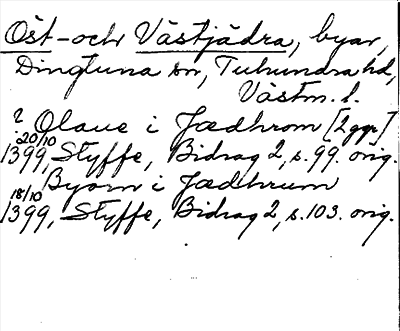 Öst- och Västjädra, byar,
Dingtuna sn, Tuhundra hd,
Västm. l.
? Olaue i Jædhrom [2 ggr]
20/10
1399, Styffe, Bidrag 2, s. 99. orig.
Byorn i Jædhrum
18/10
1399, Styffe, Bidrag 2, s. 103. orig.